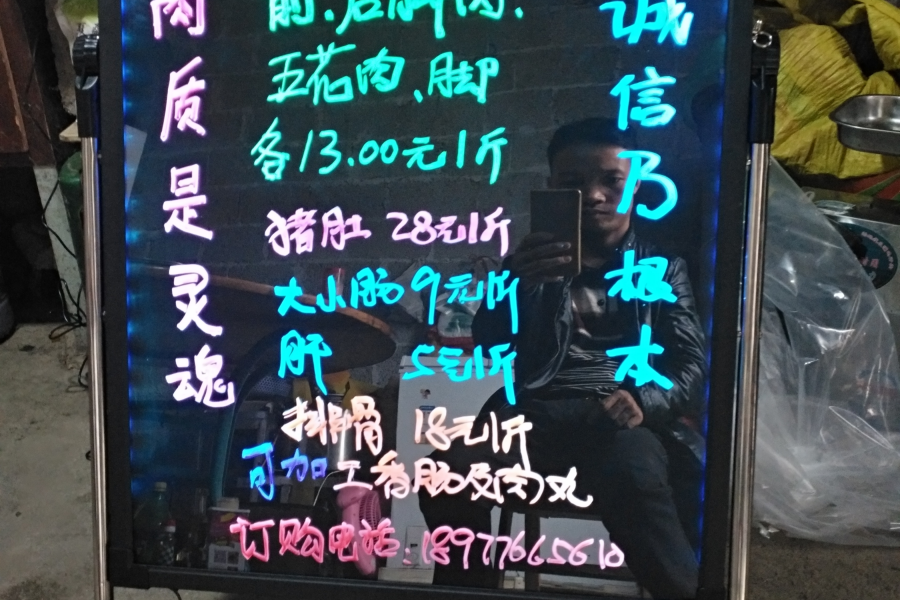 肉质是灵魂
前.后脚肉.
五花肉、脚
各13.00元1斤
猪肚 28元1斤
大小肠9元1斤
肝 5元1斤
排骨 18元1斤
可加工香肠及肉丸
订购电话:18977665610
诚信乃根本